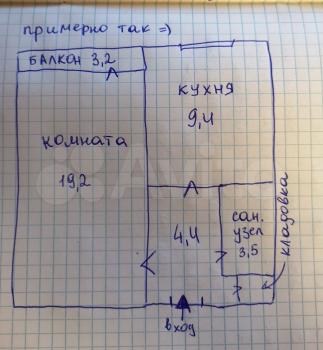 примерно так =)
БАЛКОН 3,2
КУХНЯ
9,4
комната
19,2
сан.
узел
3,5
4,4
кладовка
вход